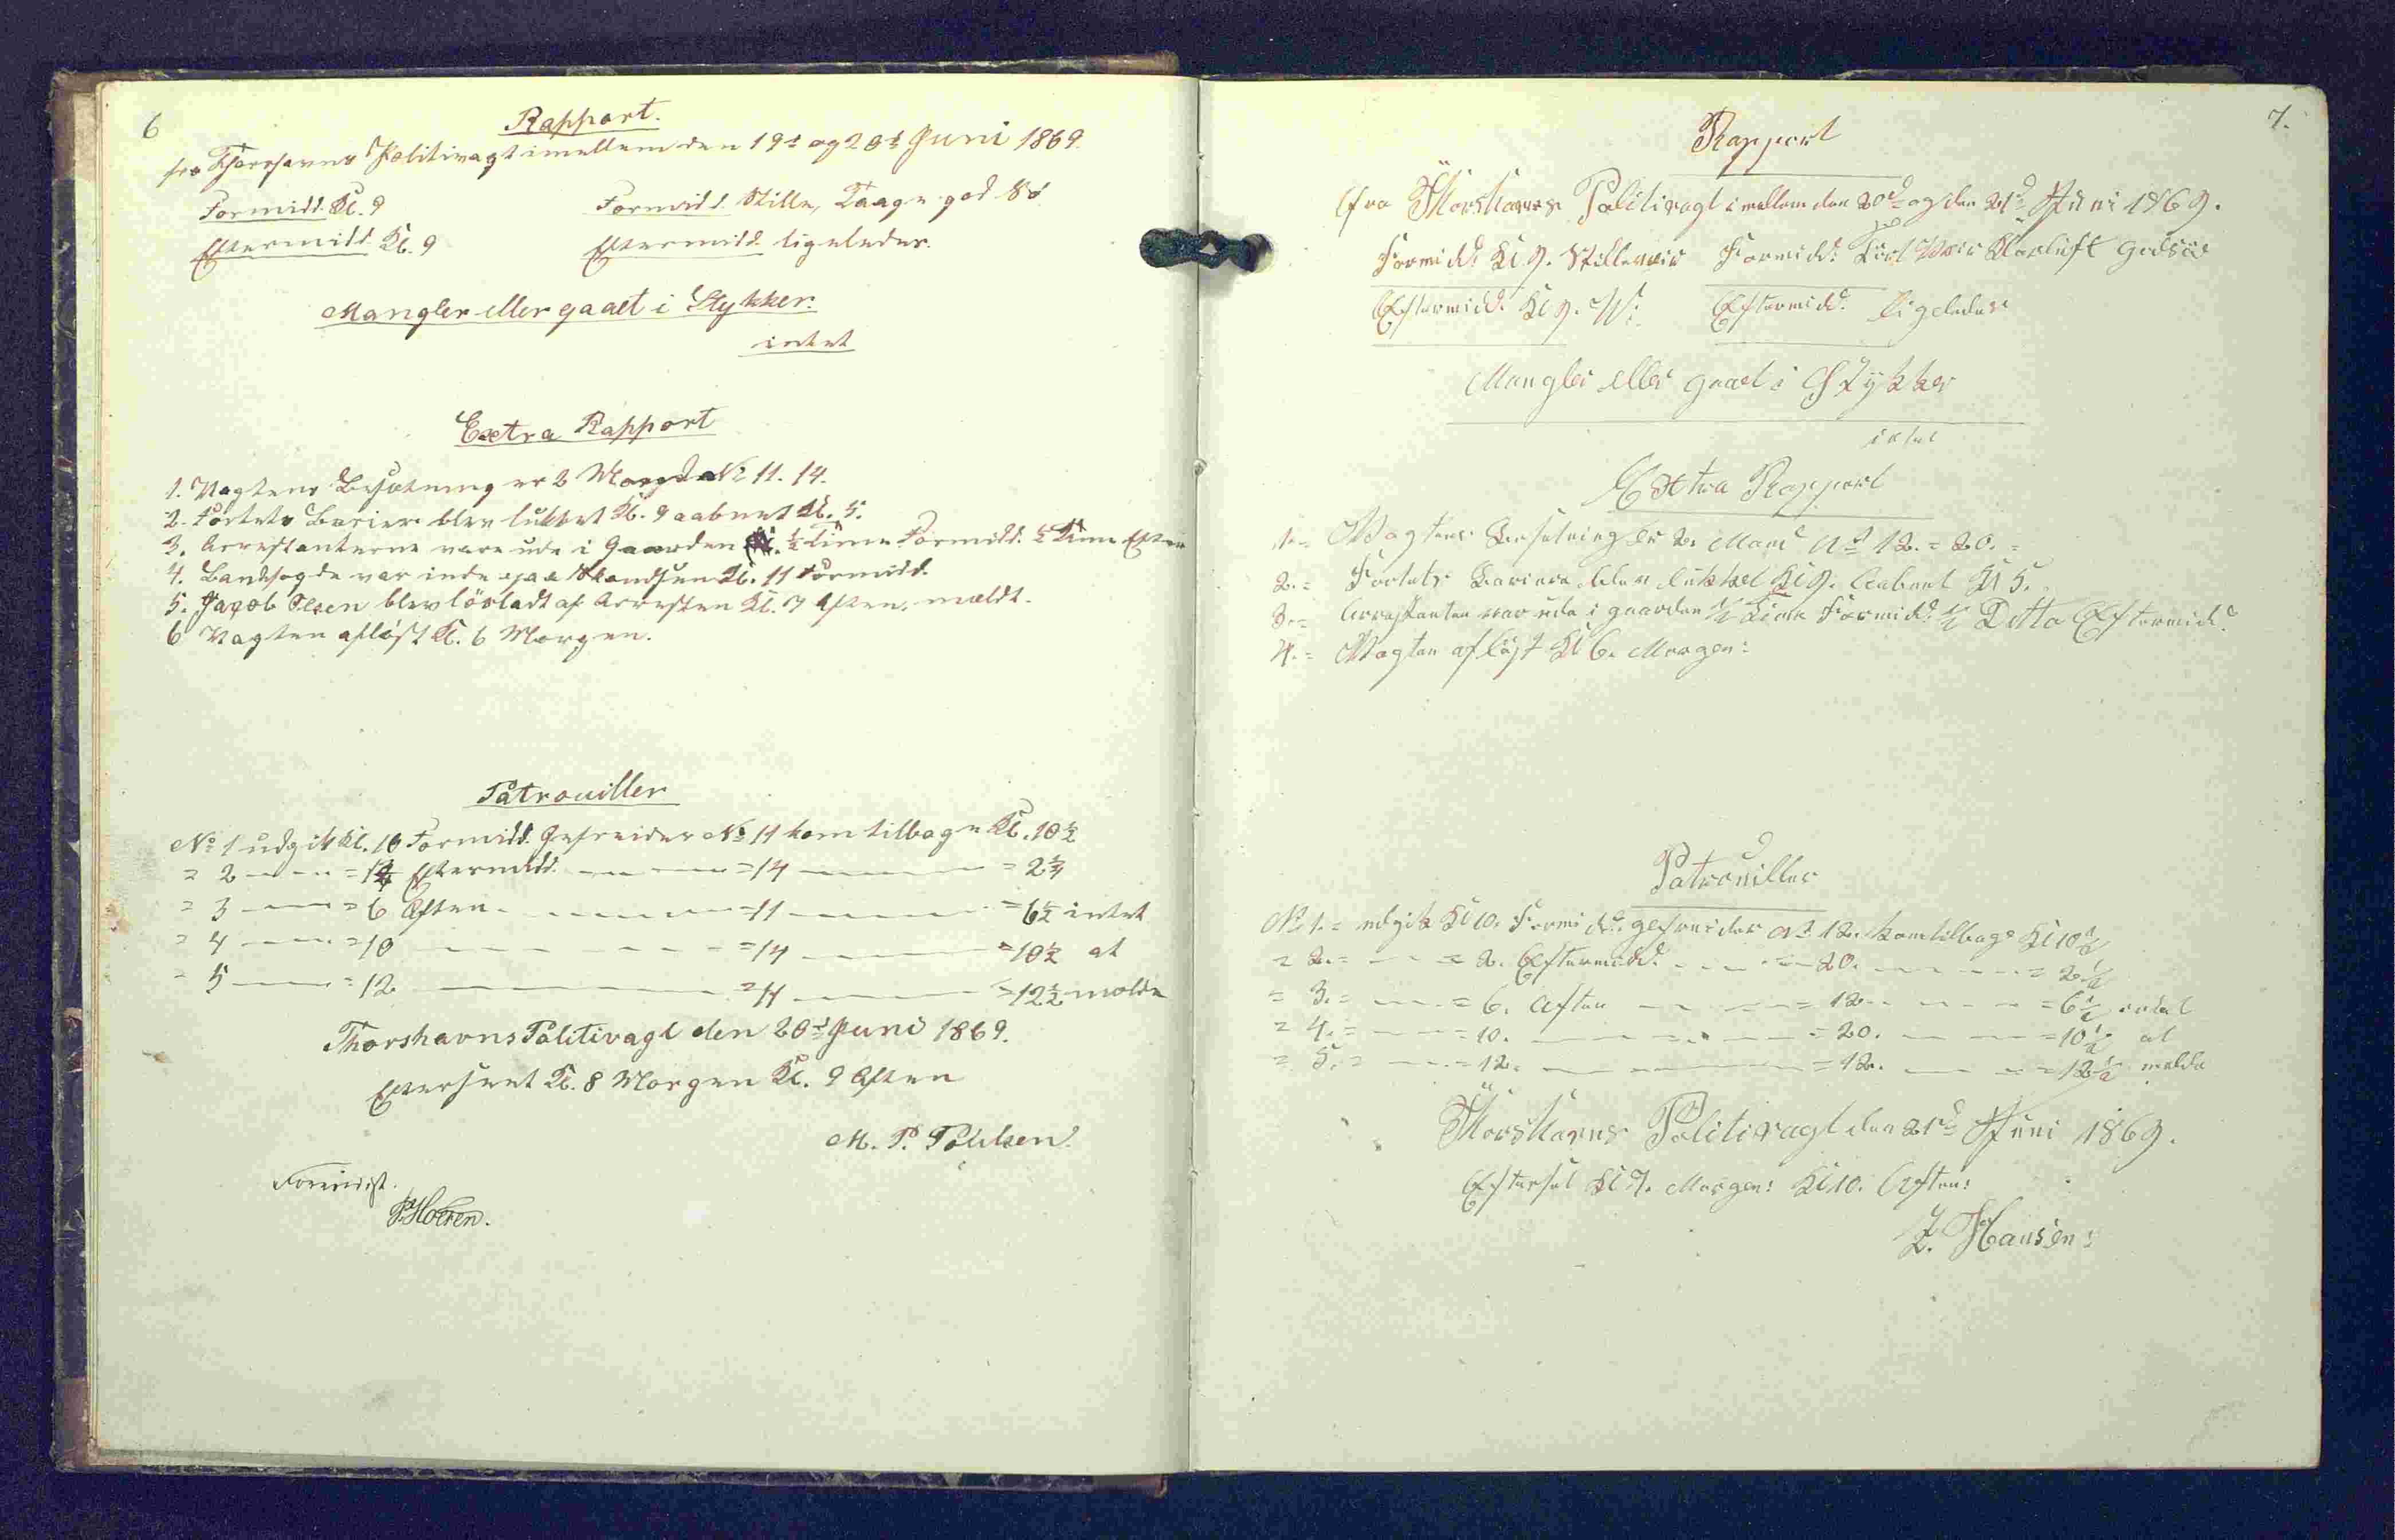 6
Rapport.
fra Thorshavns Politivagt imellem den 19d og 20d Juni 1869.
Formidd. Kl. 9 Formidd. Stille, Taage god Sö.
Eftermidd. Kl. 9 Eftermidd. ligeledes.
Mangler eller gaaet i Stykker.
intet
Extra Rapport
1. Vagtens Besætning er 2 Mand No 11. 14.
2. Fortets Bariere blev lukket Kl. 9 aabnet Kl. 5.
3. Arrestanterne vare ude i Gaarden ½ Time Formidd. ½ Time Efter
4. var inde Kl. 11 Formidd.
5. Jacob Olsen blev lösladt af Arresten Kl. 7 Aften.
6 Vagten aflöst Kl. 6 Morgen.
Patrouiller
No 1 udgik Kl. 10 Formidd. Gefreider No 11 kom tilbage Kl. 10½
= 2 — — = Eftermidd. — — =14 — — = 2½
= 3 — — = 6 Aften — — =11 — — =6½ intet
= 4 — — =10 — — =14 — — =10½ at
= 5 — — =12 — — =11 — — =12½ melde
Thorshavns Politivagt den 20d Juni 1869.
Efterseet Kl. 8 Morgen Kl. 9 Aften
M. P. Poulsen.
Forevist.
7.
Rapport
fra Thorshavns Politivagt imellem den 20d og den 21d Juni 1869.
Formidd: Kl 9. Formidd: Klarluft god Söe
Eftermidd. Kl 9. Eftermidd. ligeledes
Mangler eller gaaet i Stykker
intet
Extra Rapport
1.= Vagtens Besetning er 2. Mand No 12. = 20. =
2.= Fortets Bariere blev lukket Kl 9. Aabnet Kl 5.
3.= Arrestanten var ude i gaarden ½ Time Formidd: ½ Ditto Eftermidd.
4.= Vagten aflöst Kl 6. Morgen:
Patrouiller
No 1. = udgik Kl 10. Formidd: gefreider No 12. kom tilbage Kl 10½
= 2.= — — = 2. Eftermidd. — — =20. — — = 2½
= 3.= — — = 6. Aften — — = 12. — — =6½ intet
= 4.= — — = 10. — — = 20. — — =10½ at
= 5.= — — = 12. — — = 12. — — =12½ melde
Thorshavns Politivagt den 21d Juni 1869.
Efterset Kl 7. Morgen: Kl 10. Aften:
Z. Hansen: